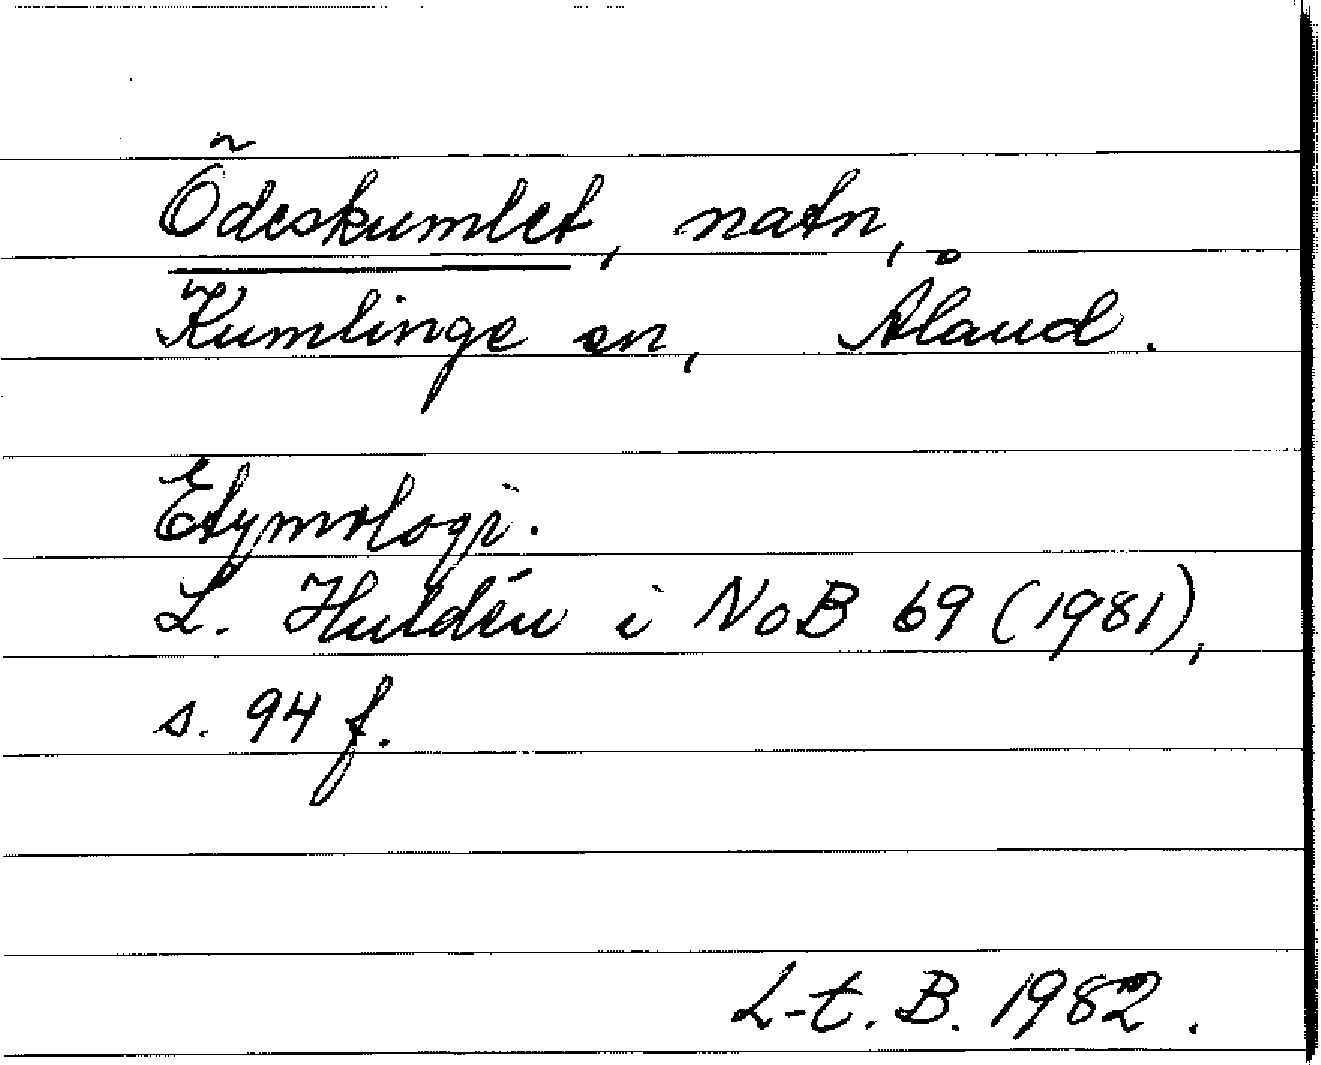 Ödeskumlet, natn,
Kumlinge sn, Åland.
Etymologi.
L. Huldén i NoB 69 (1981),
s. 94 f.
L-t. B. 1982.